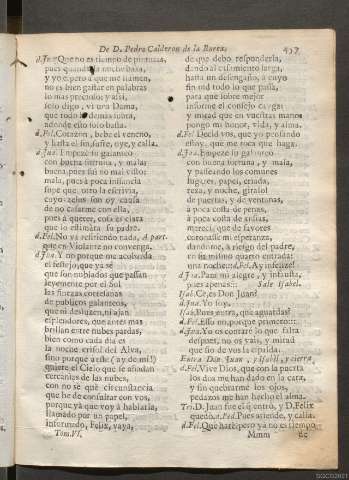 De D. Pedro Calderon de la Barca.
d.Jua. Que no es tiempo de pinturas,
pues quando la noche baxa,
y yo espero à que me llamen,
no es bien gastar en palabras
lo mas precioso: y assi,
solo digo, vi una Dama,
que todo lo demàs sobra,
adonde esto solo basta.
d.Fel. Corazon, bebe el veneno,
y hasta el fin sufre, oye, y calla.
d.Jua. Empezè su galanteo
con buena fortuna, y mala;
buena, pues fui no mal visto:
mala, pues à poca instancia
supe que otro la servia,
cuyos zelos son oy causa
de no casarme con ella,
pues à querer, cosa es clara
que lo estimàra su padre.
d.Fel. No và refiriendo nada, A part.
que en Violante no convenga.
d.Jua. Y no porque me acobarda
el festejo, que ya sè
que son nublados que passan
levemente por el Sol
las finezas cortesanas
de publicos galanteos,
que ni deslucen, ni ajan
esplendores, que antes mas
brillan entre nubes pardas,
bien como cada dia es
la noche crisol del Alva,
sino porque aunque (ay de mi!)
quiere el Cielo que se añadan
cercanias de las nubes,
con no sè què circunstancia
que he de consultar con vos,
porque yà que voy à hablarla,
llamado por un papel,
informado, Felix, vaya,
Tom. VI.
de que debo responderla,
dando al casamiento larga,
hasta un desengaño, à cuyo
fin nad todo lo que passa,
para que sobre mejor
informe el consejo cayga:
y mirad que en vuestras manos
pongo mi honor, vida, y alma.
d.Fel. Decid vos, que yo pensando
estoy què me toca que haga.
d.Jua. Empezè su galanteo
con buena fortuna, y mala,
y passeando los comunes
lugares, papel, criada,
reja, y noche, girasol
de puertas, y de ventanas,
à poca costa de penas,
à poca costa de ansias,
merecì que de favores
coronasse mi esperanza,
dandome, à riesgo del padre,
en su mismo quarto entrada:
una noche d.Fel. Ay infelice!
d.Jua. Para mi alegre, y infausta,
pues apenas::: Sale Isabel.
Isab. Ce, es Don Juan?
d.Jua. Yo soy.
Isab. Pues entra, què aguardas?
d.Fel. Esso no, porque primero:::
d.Jua. Yo os contarè lo que falta
despues, no os vais, y mirad
que fio de vos la espalda.
Entra Don Juan, y Isabel, y cierra.
d.Fel. Vive Dios, que con la puerta
los dos me han dado en la cara,
y sin quebrarme los ojos,
pedazos me han hecho el alma.
Tri. D. Juan fue el q entrò, y D. Felix
quedò. A. Ped. Pues atiende, y calla.
d.Fel. Què harè? pero yà no es tiempo
Mmm
de
SGCB2021